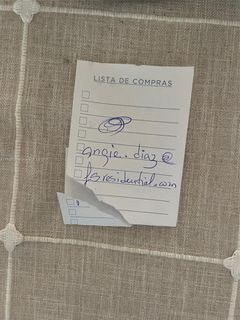 LISTA DE COMPRAS
angie.diaz@
fsresidential.com